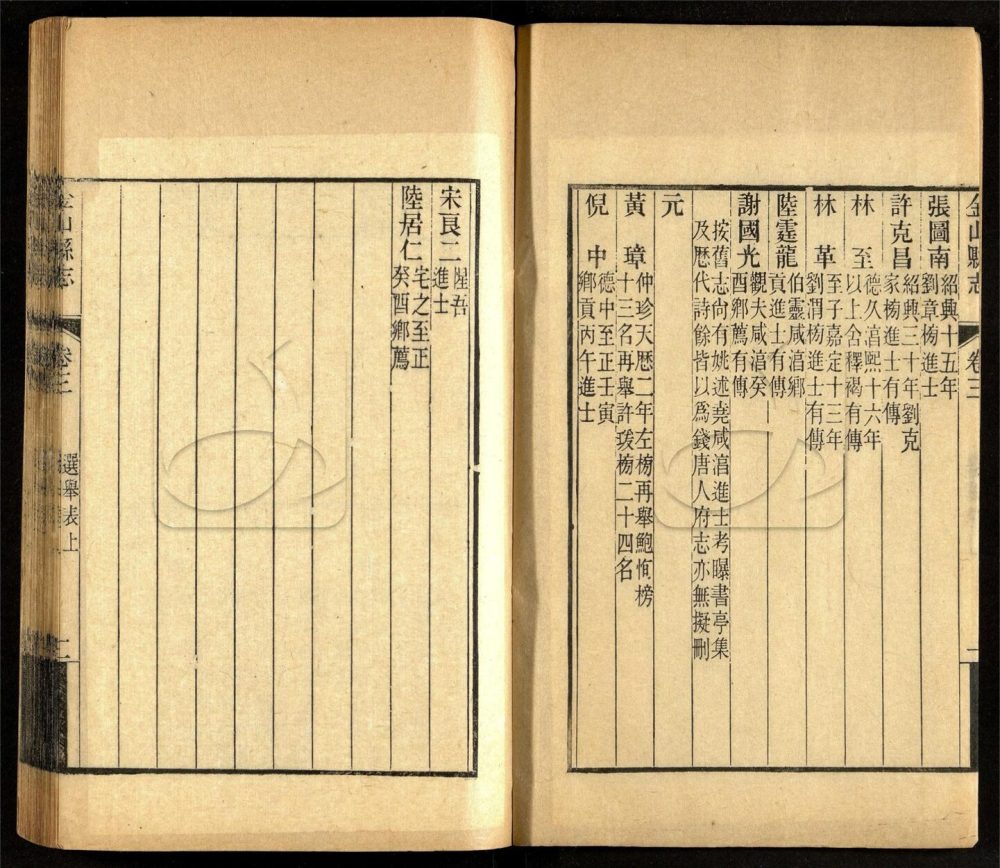 金山縣志 卷三
張圖南 紹興十五年
劉章榜進士
許克昌 紹興三十年劉克
家榜進士有傳
林至 德久淳熙十六年
以上舍釋褐有傳
林革 至子嘉定十三年
劉渭榜進士有傳
陸霆龍 伯靈咸淳鄉
貢進士有傳
謝國光 觀夫咸淳癸
酉鄉薦有傳
按舊志尚有姚述堯咸淳進士考曝書亭集
及歷代詩餘皆以爲錢唐人府志亦無擬刪
元
黃璋 仲珍天歷二年左榜再舉鮑恂榜
十三名再舉許瑗榜二十四名
倪中 德中至正壬寅
鄉貢丙午進士
宋良二 陞吾
進士
陸居仁 宅之至正
癸酉鄉薦
金山縣志 卷三 選舉表上 二